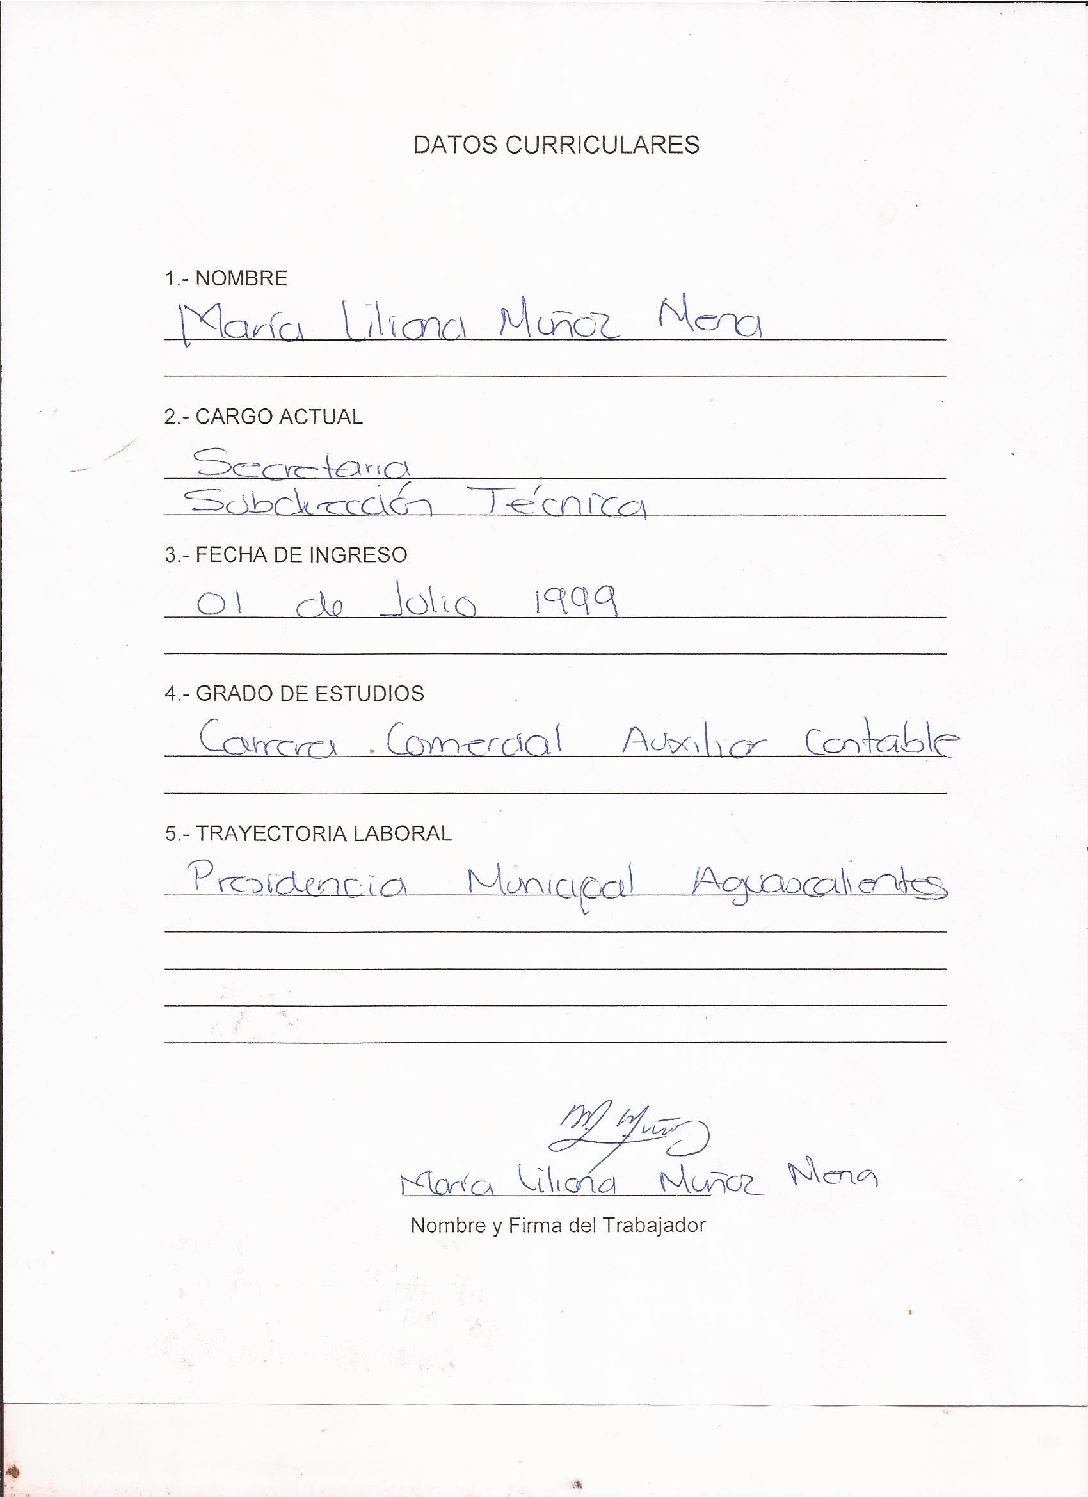 DATOS CURRICULARES
1.- NOMBRE
María Liliana Muñoz Mena
2.- CARGO ACTUAL
Secretaria
Subdirección Técnica
3.- FECHA DE INGRESO
01 de Julio 1999
4.- GRADO DE ESTUDIOS
Carrera Comercial Auxiliar Contable
5.- TRAYECTORIA LABORAL
Presidencia Municipal Aguascalientes
M Muñoz
María Liliana Muñoz Mena
Nombre y Firma del Trabajador